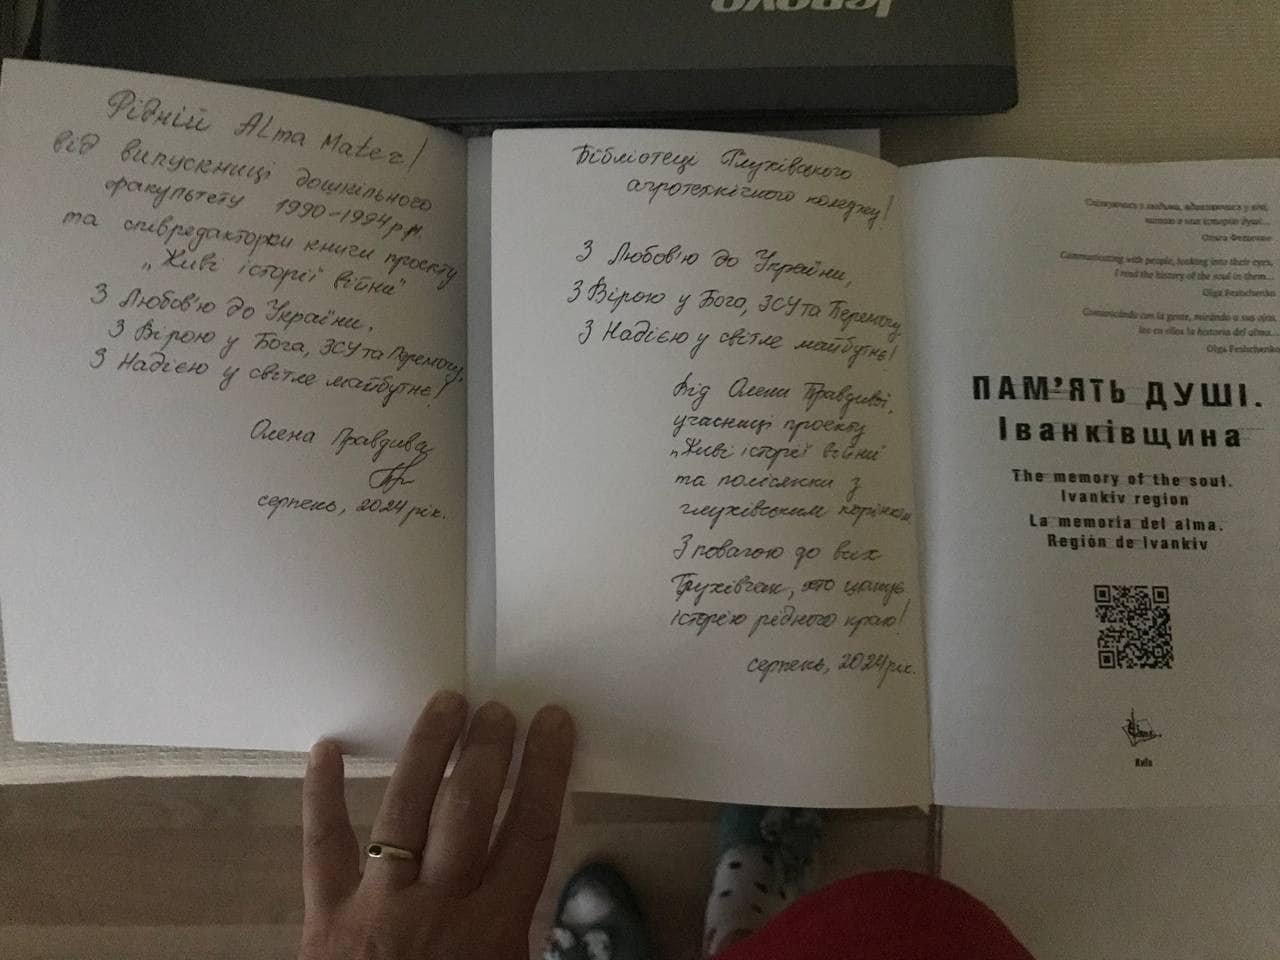 lenovo
Рідній Alma Mater!
від випускниці дошкільного
факультету 1990-1994р.р.
та співредакторки книги проєкту
„Живі історії війни"
З Любов'ю до України,
З Вірою у Бога, ЗСУ та Перемогу,
З Надією у світле майбутнє!
Олена Правдива
серпень, 2024 рік.
Бібліотеці Глухівського
агротехнічного коледжу!
З Любов'ю до України,
З Вірою у Бога, ЗСУ та Перемогу,
З Надією у світле майбутнє!
Від Олени Правдивої,
учасниці проєкту
„Живі історії війни"
та полісянки з
глухівським корінням
З повагою до всіх
Глухівчан, хто цінує
історію рідного краю!
серпень, 2024 рік.
Спілкуючись з людьми, вдивляючись у очі,
читаю в них історію душі...
Ольга Фещенко
Communicating with people, looking into their eyes,
I read the history of the soul in them...
Olga Feshchenko
Comunicando con la gente, mirando a sus ojos,
leo en ellos la historia del alma...
Olga Feshchenko
ПАМ'ЯТЬ ДУШІ.
Іванківщина
The memory of the soul.
Ivankiv region
La memoria del alma.
Región de Ivankiv
Київ